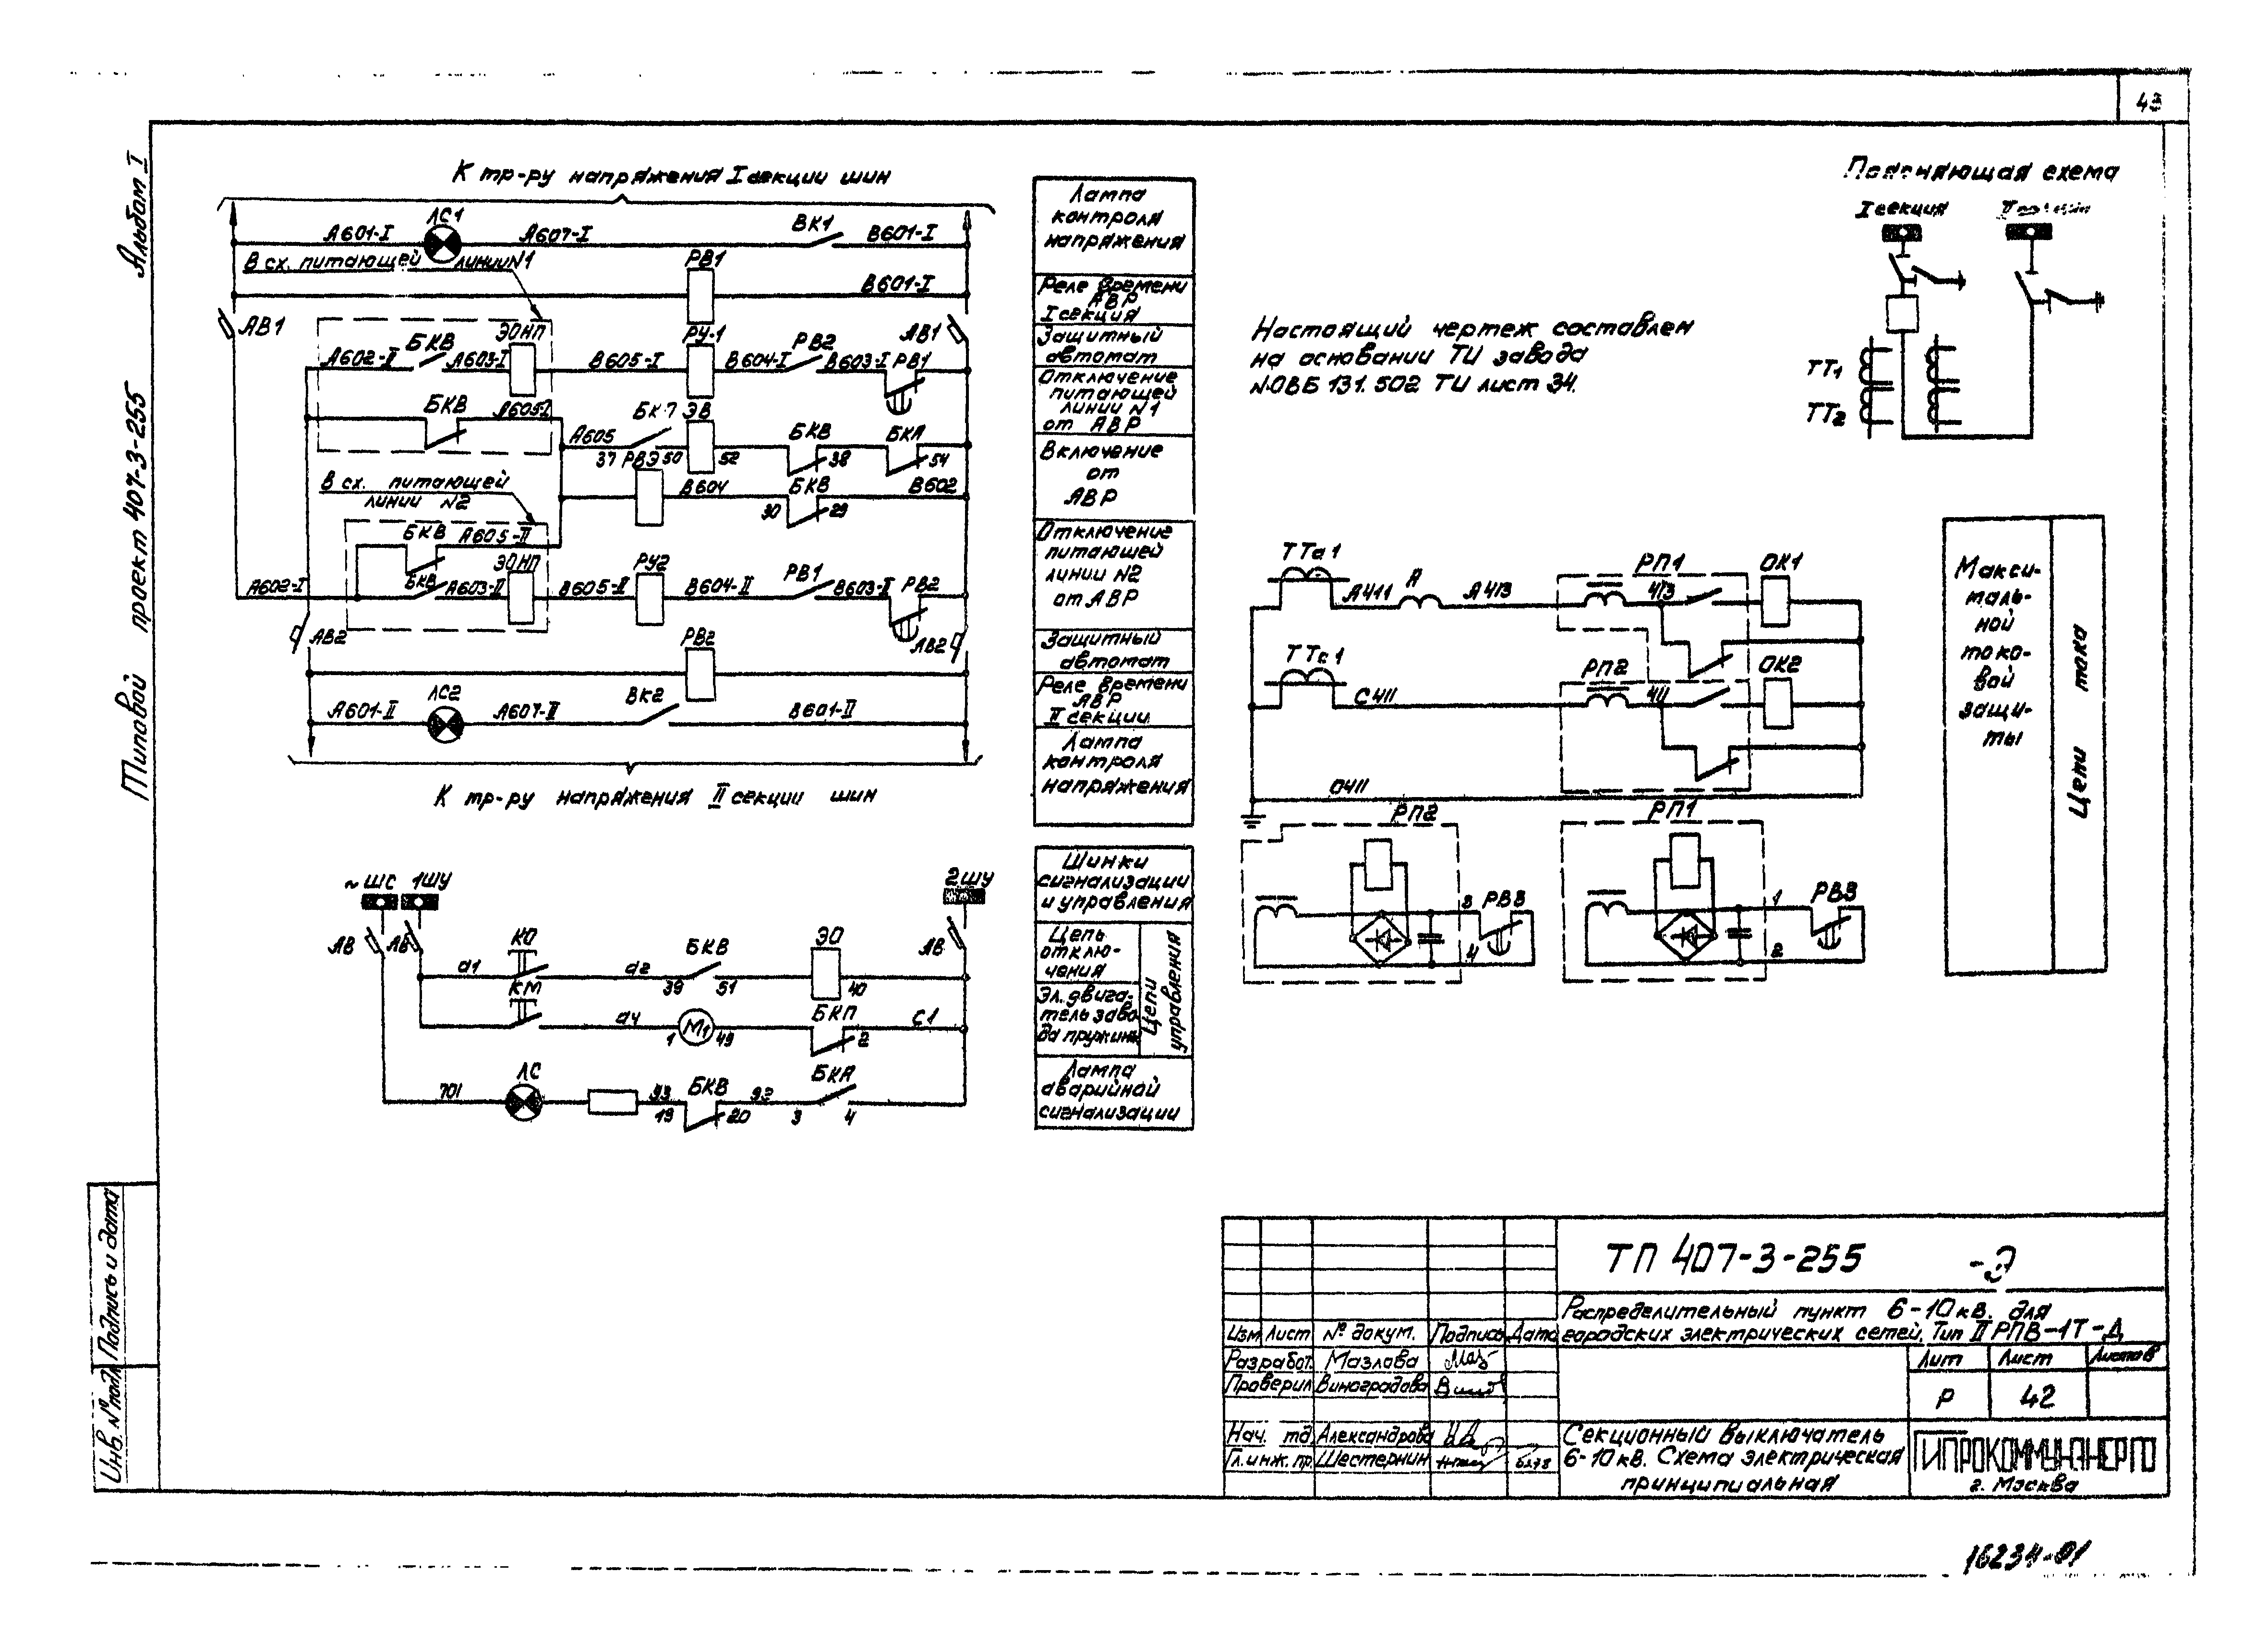 43
Альбом I
Типовой проект 407-3-255
Подпись и дата
Инв. № подл
К тр-ру напряжения I секции шин
А601-I
ЛС1
А607-I
ВК1
В601-I
В сх. питающей линии №1
РВ1
В601-I
АВ1
АВ1
А602-II
БКВ
А603-I
ЭОНП
В605-I
РУ-1
В604-I
РВ2
В603-I
РВ1
БКВ
А605-I
А605
БКП
ЭВ
БКВ
БКА
37
РВЭ
50
52
38
54
В сх. питающей
линии №2
В604
БКВ
В602
30
29
БКВ
А605-II
А602-I
БКВ
А603-II
ЭОНП
В605-II
РУ2
В604-II
РВ1
В603-I
РВ2
АВ2
АВ2
РВ2
А601-II
ЛС2
А607-II
ВК2
В601-II
К тр-ру напряжения II секции шин
Лампа
контроля
напряжения
Реле времени
АВР
I секция
Защитный
автомат
Отключение
питающей
линии №1
от АВР
Включение
от
АВР
Отключение
питающей
линии №2
от АВР
Защитный
автомат
Реле времени
АВР
II секции
Лампа
контроля
напряжения
~ШС
1ШУ
2ШУ
АВ
АВ
АВ
d1
КО
d2
БКВ
ЭО
39
51
40
КМ
d4
1
М1
49
БКП
2
С1
701
ЛС
93
БКВ
92
БКА
19
20
3
4
Шинки
сигнализации
и управления
Цепь
отклю-
чения
Эл. двига-
тель заво-
да пружины
Цепи
управления
Лампа
аварийной
сигнализации
Настоящий чертеж составлен
на основании ТИ завода
№ОВБ 131. 502 ТИ лист 34.
Поясняющая схема
I секция
ТТ1
ТТ2
ТТа1
А411
А
А413
РП1
413
ОК1
ТТс1
С411
РП2
411
ОК2
О411
РП2
3
РВВ
4
РП1
1
РВЗ
2
Макси-
маль-
ной
токо-
вой
защи-
ты
Цепи тока
ТП 407-3-255 -Э
Распределительный пункт 6-10кв. для
городских электрических сетей. Тип II РПВ-1Т-Д
Изм Лист № докум. Подпись Дата
Разработ. Мазлова
Проверил Виноградова
Нач. тд Александрова
Гл. инж. пр. Шестернин
Лит Лист Листов
Р 42
Секционный выключатель
6-10кв. Схема электрическая
принципиальная
ГИПРОКОММУНЭНЕРГО
г. Москва
16234-01